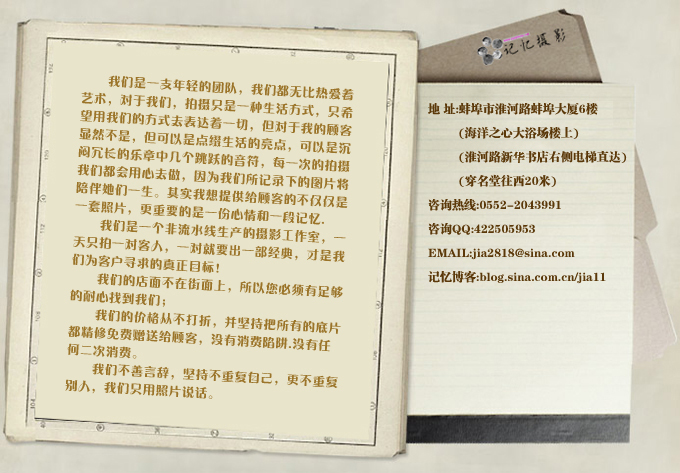 我们是一支年轻的团队，我们都无比热爱着
艺术，对于我们，拍摄只是一种生活方式，只希
望用我们的方式去表达着一切，但对于我的顾客
显然不是，但可以是点缀生活的亮点，可以是沉
闷冗长的乐章中几个跳跃的音符，每一次的拍摄
我们都会用心去做，因为我们所记录下的图片将
陪伴她们一生。其实我想提供给顾客的不仅仅是
一套照片，更重要的是一份心情和一段记忆.
我们是一个非流水线生产的摄影工作室，一
天只拍一对客人，一对就要出一部经典，才是我
们为客户寻求的真正目标！
我们的店面不在街面上，所以您必须有足够
的耐心找到我们；
我们的价格从不打折，并坚持把所有的底片
都精修免费赠送给顾客，没有消费陷阱.没有任
何二次消费。
我们不善言辞，坚持不重复自己，更不重复
别人，我们只用照片说话。
记忆摄影
地 址:蚌埠市淮河路蚌埠大厦6楼
(海洋之心大浴场楼上)
(淮河路新华书店右侧电梯直达)
(穿名堂往西20米)
咨询热线:0552-2043991
咨询QQ:422505953
EMAIL:jia2818@sina.com
记忆博客:blog.sina.com.cn/jia11